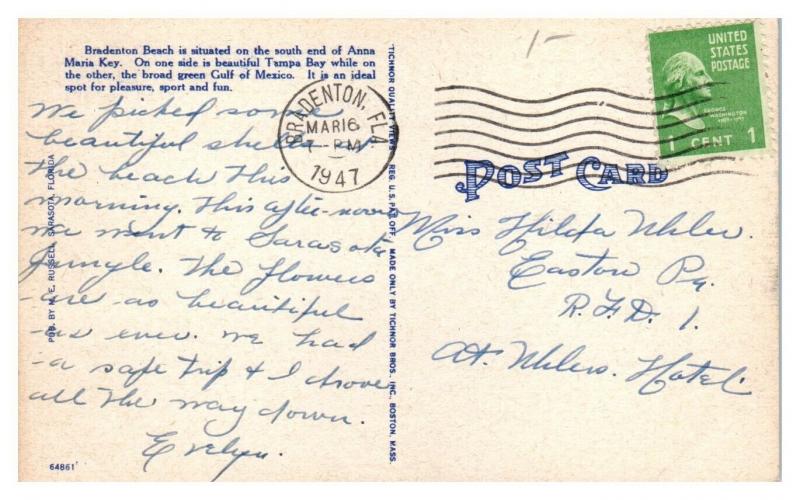 Bradenton Beach is situated on the south end of Anna
Maria Key. On one side is beautiful Tampa Bay while on
the other, the broad green Gulf of Mexico. It is an ideal
spot for pleasure, sport and fun.
We picked some
beautiful shells
the beach this
morning. This after-noon
we went to Sarasota
Jungle. The flowers
are as beautiful
as ever. We had
a safe trip & I drove
all the way down.
Evelyn.
64861
PUB. BY M. E. RUSSELL, SARASOTA, FLORIDA
"TICHNOR QUALITY VIEWS," REG. U. S. PAT. OFF. MADE ONLY BY TICHNOR BROS., INC., BOSTON, MASS.
BRADENTON, FLA.
MAR 16
7-PM
1947
1-
UNITED
STATES
POSTAGE
GEORGE
WASHINGTON
1 CENT 1
POST CARD
Miss Hilda Uhler.
Easton Pa.
R.F.D. 1.
At. Uhlers Hotel.